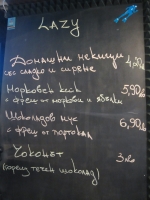 LAZY
Домашни мекици 4,90лв
със сладко и сирене
Морковен кейк 5,90лв
с фреш от моркови и ябълки
Шоколадов мус 6,90лв
с фреш от портокал
Чокочет 3лв
(горещ течен шоколад)